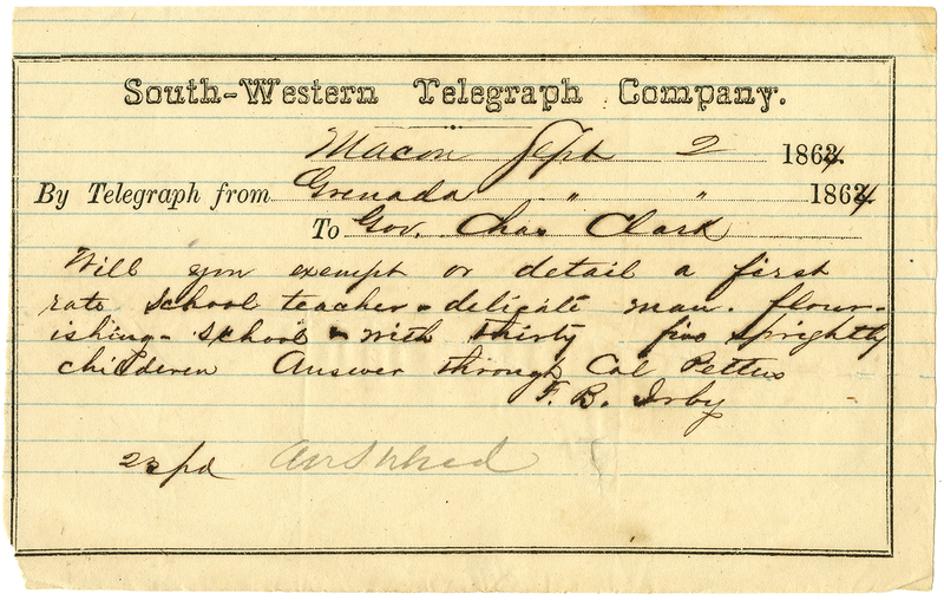 South-Western Telegraph Company.
Macon Sept 2 1864
By Telegraph from Grenada " " 1864
To Gov. Chas Clark
Will you exempt or detail a first
rate school teacher - delicate man. flour-
ishing - school - with thirty five sprightly
childeren Answer through Col Pettus
F. B. Irby
23 pd